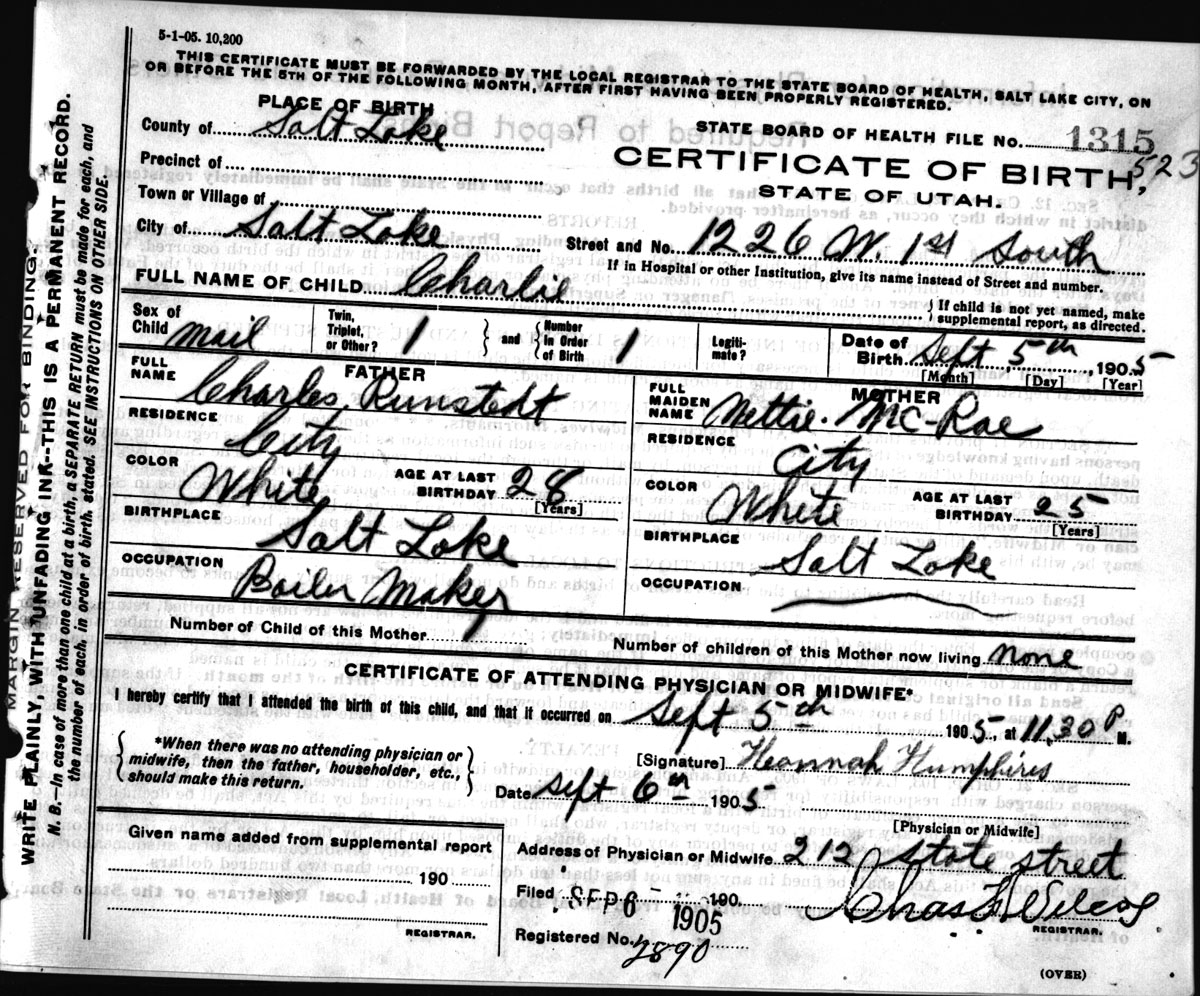 5-1-05. 10,200
THIS CERTIFICATE MUST BE FORWARDED BY THE LOCAL REGISTRAR TO THE STATE BOARD OF HEALTH, SALT LAKE CITY, ON
OR BEFORE THE 5TH OF THE FOLLOWING MONTH, AFTER FIRST HAVING BEEN PROPERLY REGISTERED.
PLACE OF BIRTH
County of Salt Lake
STATE BOARD OF HEALTH FILE NO. 1315
523
Precinct of
CERTIFICATE OF BIRTH,
STATE OF UTAH.
Town or Village of
City of Salt Lake
Street and No. 1226 W. 1st South
If in Hospital or other Institution, give its name instead of Street and number.
FULL NAME OF CHILD Charlie
If child is not yet named, make
supplemental report, as directed.
Sex of
Child mail
Twin,
Triplet,
or Other? 1
and
Number
in Order
of Birth 1
Legiti-
mate?
Date of
Birth Sept 5th, 1905
[Month] [Day] [Year]
FATHER
FULL
NAME Charles Runstedt
RESIDENCE City
COLOR White
AGE AT LAST
BIRTHDAY 28
[Years]
BIRTHPLACE Salt Lake
OCCUPATION Boiler Maker
MOTHER
FULL
MAIDEN
NAME Nettie Mc-Rae
RESIDENCE City
COLOR White
AGE AT LAST
BIRTHDAY 25
[Years]
BIRTHPLACE Salt Lake
OCCUPATION
Number of Child of this Mother 1
Number of children of this Mother now living none
CERTIFICATE OF ATTENDING PHYSICIAN OR MIDWIFE*
I hereby certify that I attended the birth of this child, and that it occurred on Sept 5th 1905, at 11.30 P M.
*When there was no attending physician or
midwife, then the father, householder, etc.,
should make this return.
[Signature] Hannah Humphires
Date sept 6th 1905
[Physician or Midwife]
Given name added from supplemental report
190
REGISTRAR.
Address of Physician or Midwife 212 State street
Filed SEP 6 1905 190
Chas F Wilcox
REGISTRAR.
Registered No. 2890
(OVER)
MARGIN RESERVED FOR BINDING.
WRITE PLAINLY, WITH UNFADING INK--THIS IS A PERMANENT RECORD.
N. B.—In case of more than one child at a birth, a SEPARATE RETURN must be made for each, and
the number of each, in order of birth, stated. SEE INSTRUCTIONS ON OTHER SIDE.